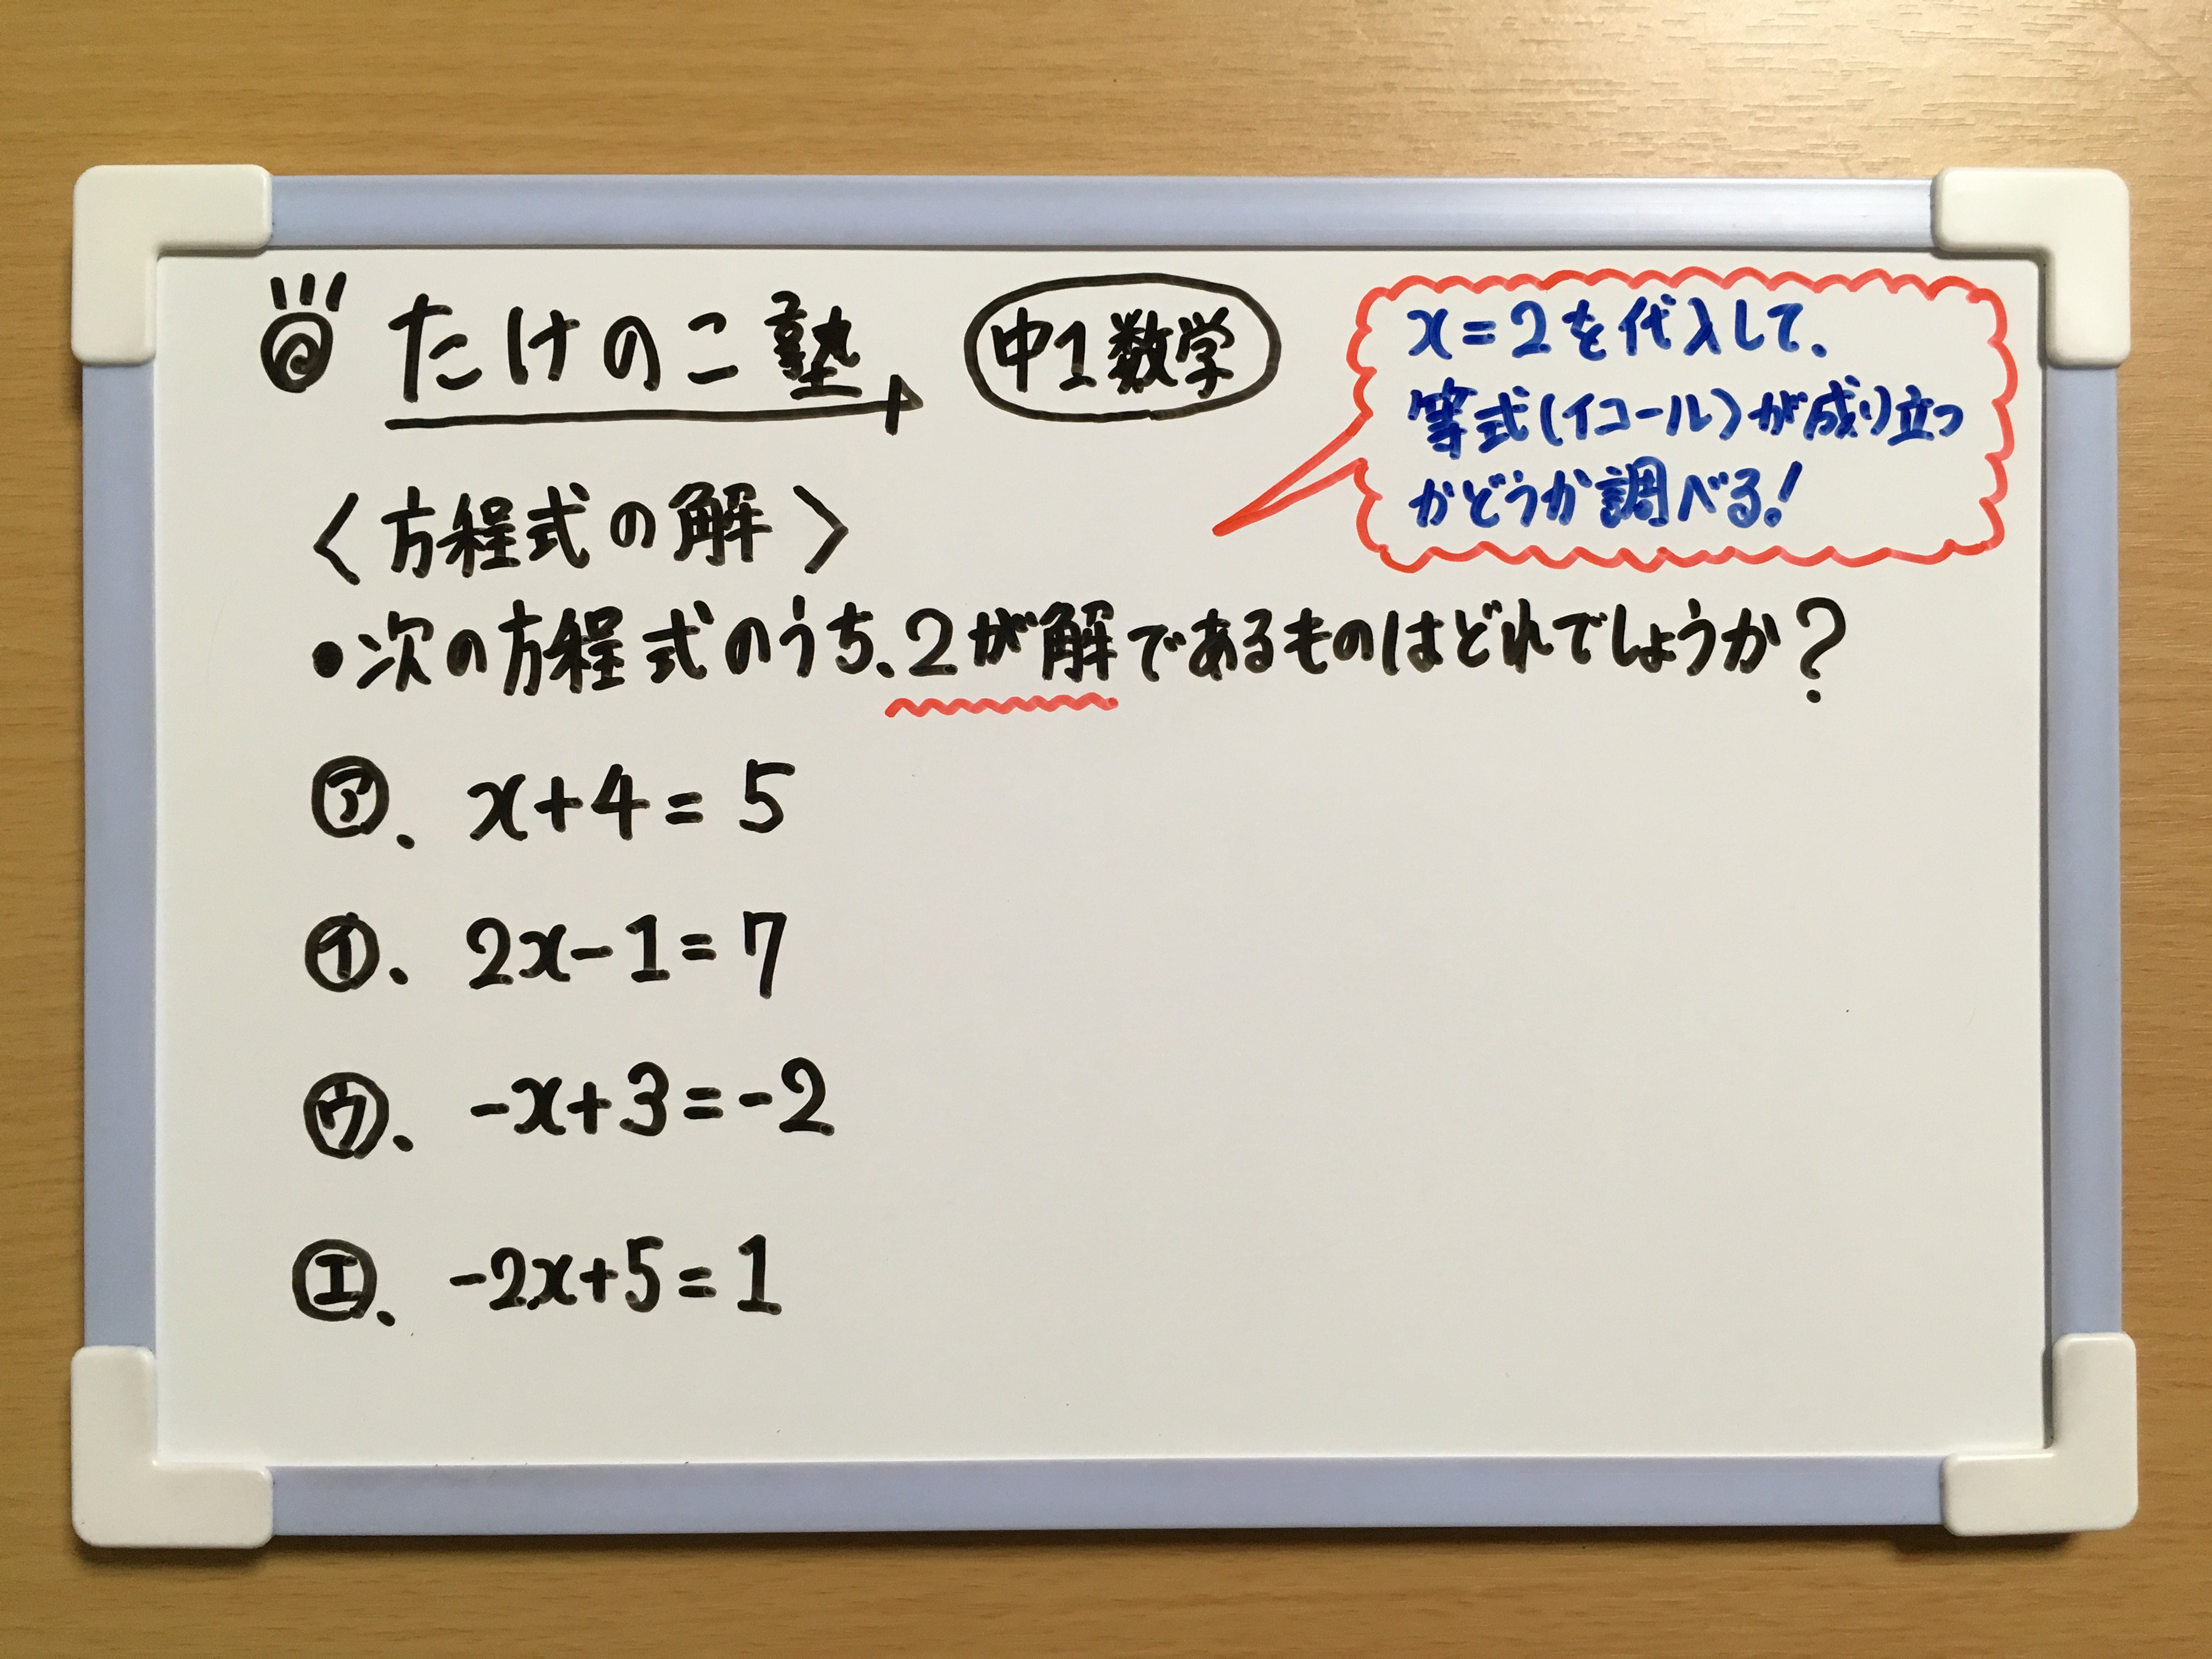 たけのこ塾 中1数学
x=2を代入して、
等式(イコール)が成り立つ
かどうか調べる!
〈方程式の解〉
●次の方程式のうち、2が解であるものはどれでしょうか?
㋐. x+4=5
㋑. 2x-1=7
㋒. -x+3=-2
㋓. -2x+5=1